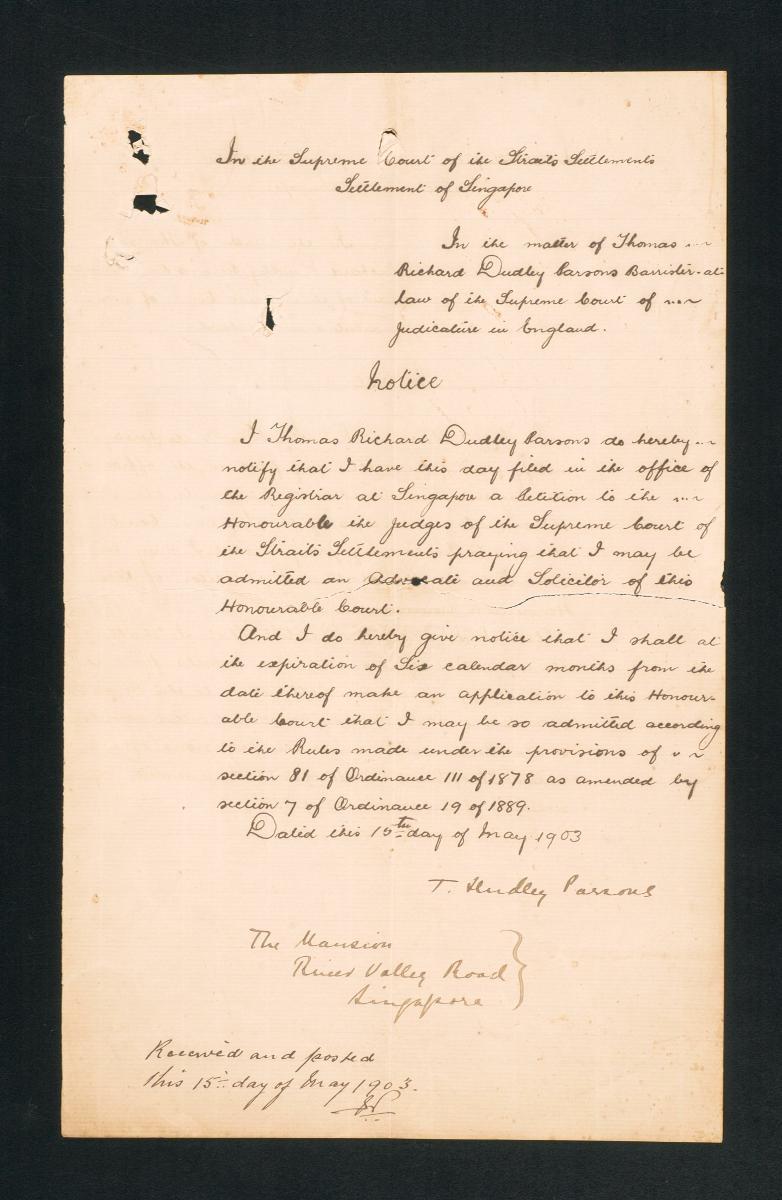 In the Supreme Court of the Straits Settlements
Settlement of Singapore
In the matter of Thomas
Richard Dudley Parsons Barrister-at-
law of the Supreme Court of
Judicature in England.
Notice
I Thomas Richard Dudley Parsons do hereby
notify that I have this day filed in the office of
the Registrar at Singapore a Petition to the
Honourable the Judges of the Supreme Court of
the Straits Settlements praying that I may be
admitted an Advocate and Solicitor of this
Honourable Court.
And I do hereby give notice that I shall at
the expiration of Six calendar months from the
date thereof make an application to this Honour-
able Court that I may be so admitted according
to the Rules made under the provisions of
section 81 of Ordinance III of 1878 as amended by
section 7 of Ordinance 19 of 1889.
Dated this 15th day of May 1903
T. Dudley Parsons
The Mansion
River Valley Road
Singapore
Received and posted
this 15th day of May 1903.